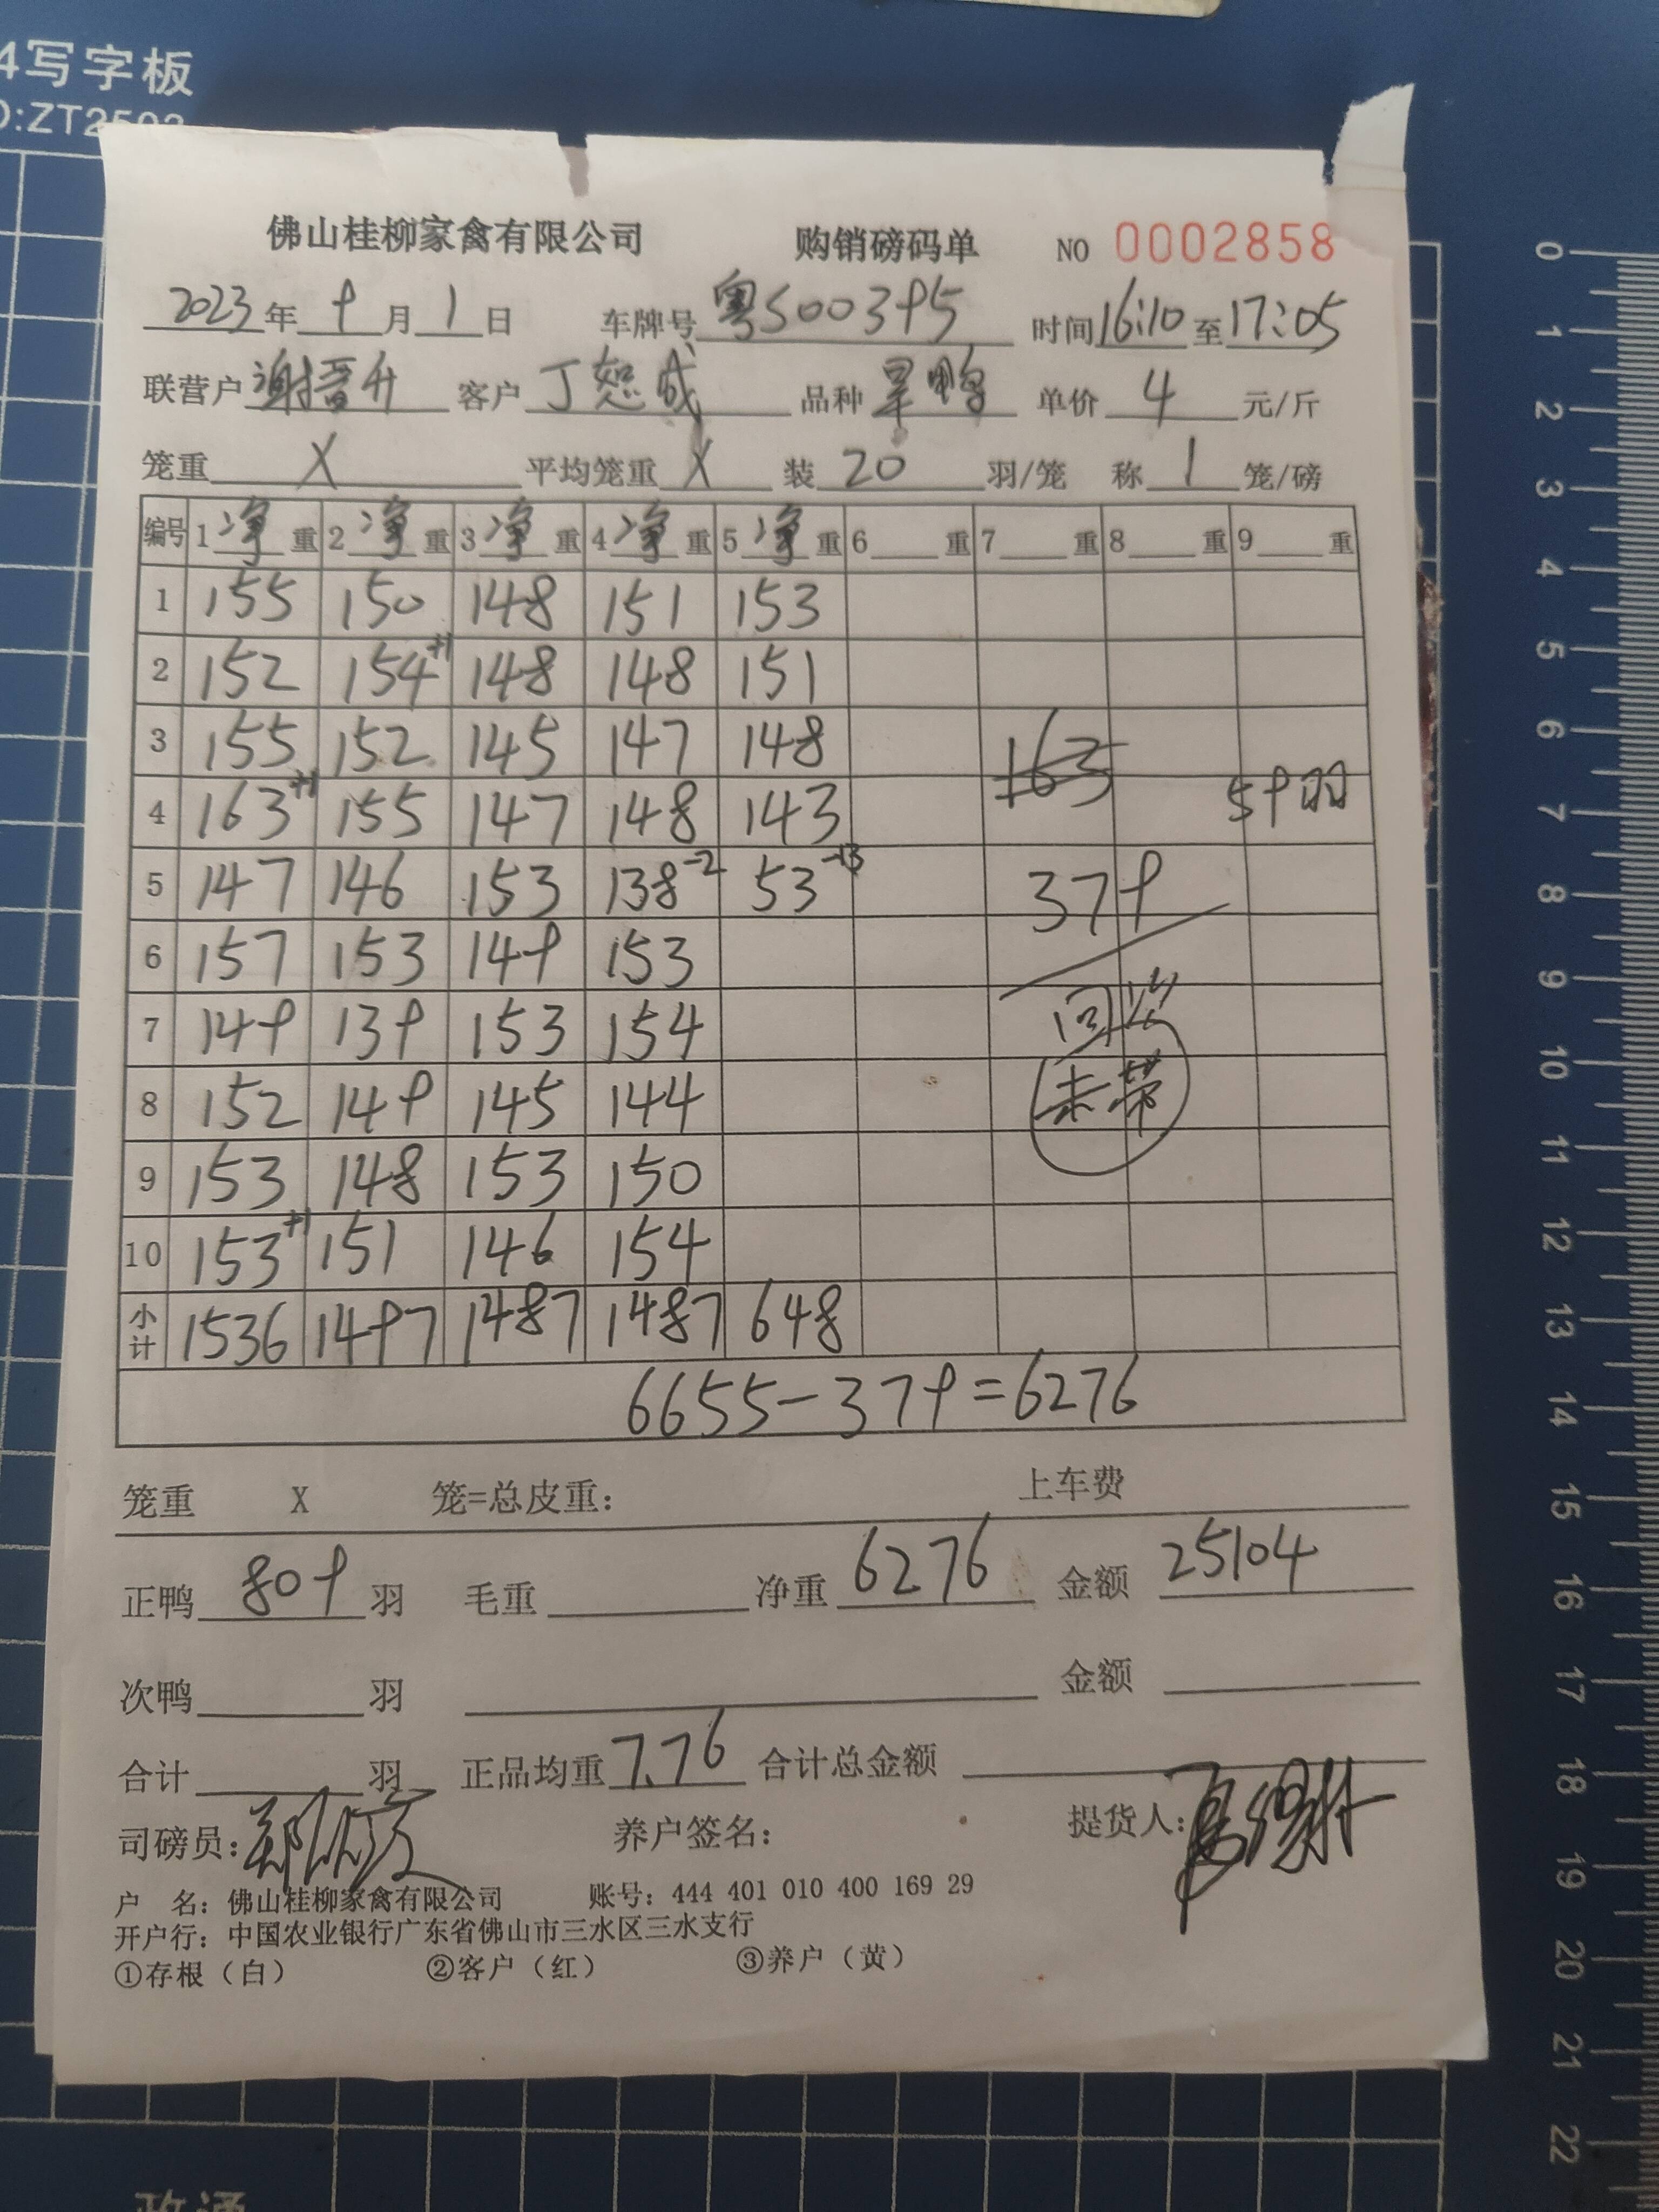 4写字板
D:ZT2503
佛山桂柳家禽有限公司 购销磅码单 NO 0002858
2023年 9月 1日 车牌号 粤S00395 时间 16:10 至 17:05
联营户 谢晋升 客户 丁恕成 品种 旱鸭 单价 4 元/斤
笼重 X 平均笼重 X 装 20 羽/笼 称 1 笼/磅
编号 1净重 2净重 3净重 4净重 5净重 6重 7重 8重 9重
1 155 150 148 151 153
2 152 154+1 148 148 151
3 155 152 145 147 148 163
4 163+1 155 147 148 143 59羽
5 147 146 153 138-2 53-13 379
6 157 153 149 153
7 149 139 153 154 回
8 152 149 145 144 未带
9 153 148 153 150
10 153+1 151 146 154
小计 1536 1497 1487 1487 648
6655-379=6276
笼重 X 笼=总皮重: 上车费
正鸭 809 羽 毛重 净重 6276 金额 25104
次鸭 羽 金额
合计 羽 正品均重 7.76 合计总金额
司磅员: 养户签名: 提货人:
户 名: 佛山桂柳家禽有限公司 账号: 444 401 010 400 169 29
开户行: 中国农业银行广东省佛山市三水区三水支行
①存根（白） ②客户（红） ③养户（黄）
0
1
2
3
4
5
6
7
8
9
10
11
12
13
14
15
16
17
18
19
20
21
22